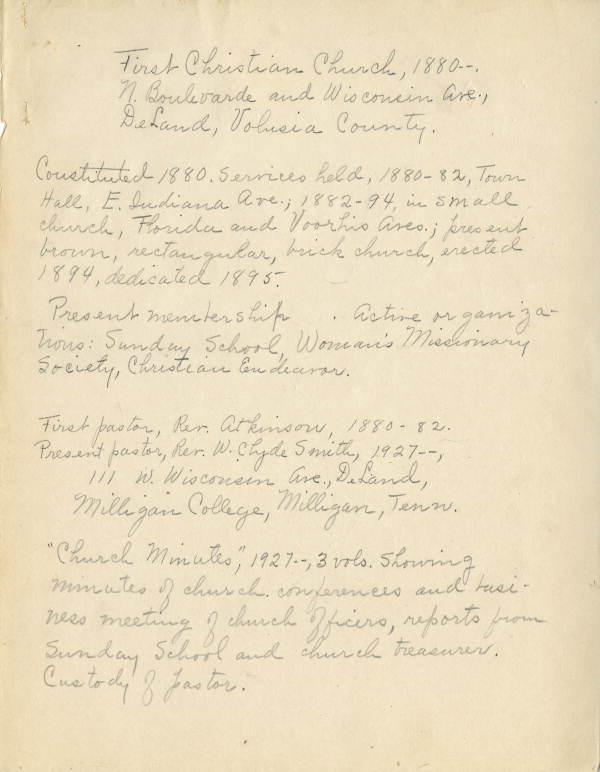 First Christian Church, 1880--.
N. Boulevarde and Wisconsin Ave.,
DeLand, Volusia County.
Constituted 1880. Services held, 1880-82, Town
Hall, E. Indiana Ave.; 1882-94, in small
church, Florida and Voorhis Aves.; present
brown, rectangular, brick church, erected
1894, dedicated 1895.
Present membership . Active organiza-
tions: Sunday School, Woman's Missionary
Society, Christian Endeavor.
First pastor, Rev. Atkinson, 1880-82.
Present pastor, Rev. W. Clyde Smith, 1927--,
111 W. Wisconsin Ave., DeLand,
Milligan College, Milligan, Tenn.
"Church Minutes", 1927--, 3 vols. Showing
minutes of church conferences and busi-
ness meeting of church officers, reports from
Sunday School and church treasurer.
Custody of pastor.